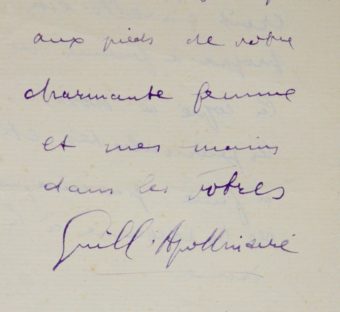 aux pieds de votre
charmante femme
et mes mains
dans les vôtres
Guill. Apollinaire